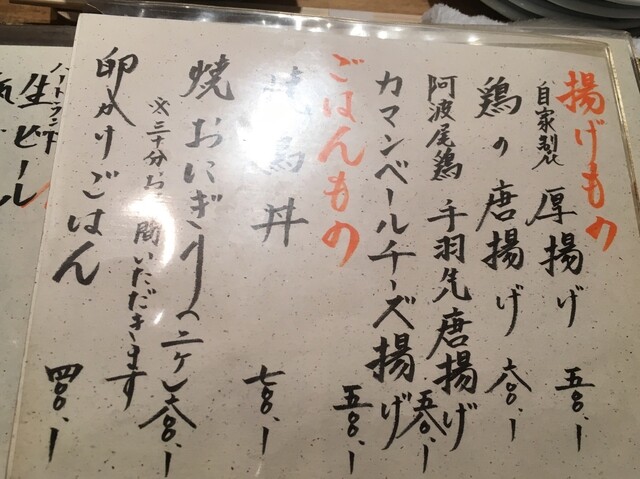 揚げもの
自家製 厚揚げ 五〇〇.ー
鶏の唐揚げ 六〇〇.ー
阿波尾鶏 手羽先唐揚げ 五〇〇.ー
カマンベールチーズ揚げ 五〇〇.ー
ごはんもの
焼鳥丼 七〇〇.ー
焼おにぎり(二ケ) 六〇〇.ー
※三十分お時間いただきます
卵かけごはん 四〇〇.ー
生ビール